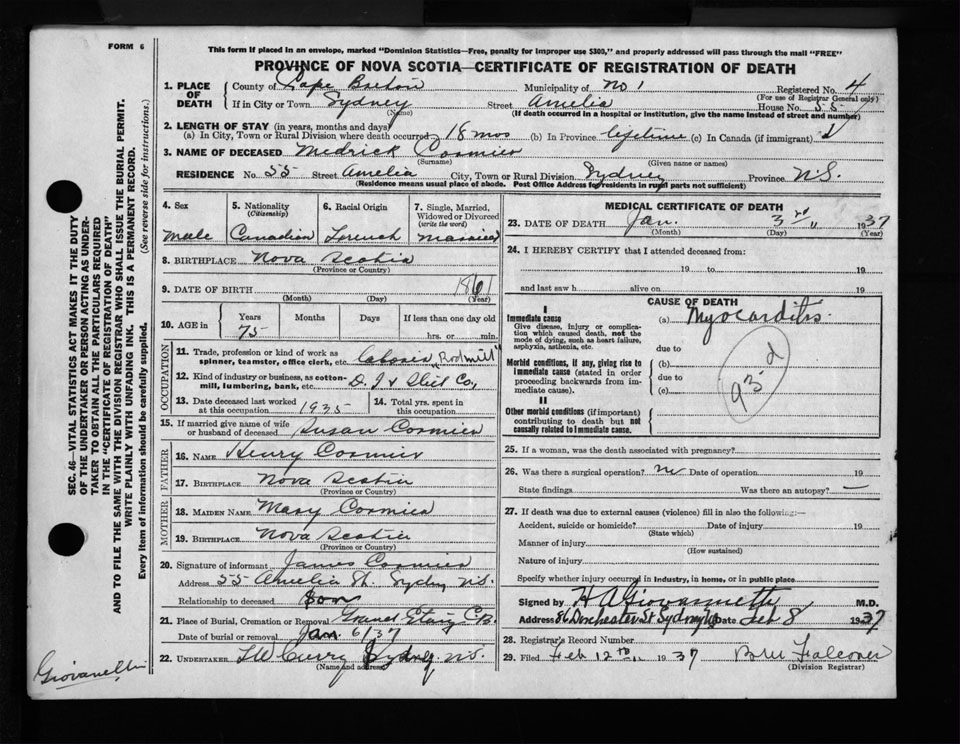 FORM 6
This form if placed in an envelope, marked "Dominion Statistics—Free, penalty for improper use $300," and properly addressed will pass through the mail "FREE"
PROVINCE OF NOVA SCOTIA—CERTIFICATE OF REGISTRATION OF DEATH
1. PLACE OF DEATH County of Cape Breton Municipality of No 1 Registered No. 4
(For use of Registrar General only)
If in City or Town Sydney Street Amelia House No. 55
(Name) (If death occurred in a hospital or institution, give the name instead of street and number)
2. LENGTH OF STAY (in years, months and days)
(a) In City, Town or Rural Division where death occurred 18 mos (b) In Province lifetime (c) In Canada (if immigrant)
3. NAME OF DECEASED Medrick Cormier
(Surname) (Given name or names)
RESIDENCE No. 55 Street Amelia City, Town or Rural Division Sydney Province N.S.
(Residence means usual place of abode. Post Office Address for residents in rural parts not sufficient)
4. Sex Male
5. Nationality (Citizenship) Canadian
6. Racial Origin French
7. Single, Married, Widowed or Divorced (write the word) married
8. BIRTHPLACE Nova Scotia
(Province or Country)
9. DATE OF BIRTH 1861
(Month) (Day) (Year)
10. AGE in Years Months Days If less than one day
75 hrs. or min.
OCCUPATION
11. Trade, profession or kind of work as spinner, teamster, office clerk, etc. Laborer "Rodmill"
12. Kind of industry or business, as cotton-mill, lumbering, bank, etc. D. I & Steel Co,
13. Date deceased last worked at this occupation 1935
14. Total yrs. spent in this occupation
15. If married give name of wife or husband of deceased Susan Cormier
FATHER
16. NAME Henry Cormier
17. BIRTHPLACE Nova Scotia
(Province or Country)
MOTHER
18. MAIDEN NAME Mary Cormier
19. BIRTHPLACE Nova Scotia
(Province or Country)
20. Signature of informant James Cormier
Address 55 Amelia St. Sydney N.S.
Relationship to deceased Son
21. Place of Burial, Cremation or Removal Grand Etang C.B.
Date of burial or removal Jan. 6/37
22. UNDERTAKER Curry Sydney. N.S.
(Name and address)
MEDICAL CERTIFICATE OF DEATH
23. DATE OF DEATH Jan. 3rd 1937
(Month) (Day) (Year)
24. I HEREBY CERTIFY that I attended deceased from:
19 to 19
and last saw h alive on 19
CAUSE OF DEATH
I
Immediate cause (a) Myocarditis.
Give disease, injury or complication which caused death, not the mode of dying, such as heart failure, asphyxia, asthenia, etc.
due to
Morbid conditions, if any, giving rise to immediate cause (stated in order proceeding backwards from immediate cause).
(b)
due to
(c)
93 d
II
Other morbid conditions (if important) contributing to death but not causally related to immediate cause.
25. If a woman, was the death associated with pregnancy?
26. Was there a surgical operation? no Date of operation 19
State findings Was there an autopsy? —
27. If death was due to external causes (violence) fill in also the following:—
Accident, suicide or homicide? Date of injury 19
(State which)
Manner of injury
(How sustained)
Nature of injury
Specify whether injury occurred in industry, in home, or in public place
Signed by H A Giovannetti M.D.
Address 86 Dorchester St Sydney Date Feb 8 1937
28. Registrar's Record Number
29. Filed Feb 12th 1937 Falconer
(Division Registrar)
SEC. 46—VITAL STATISTICS ACT MAKES IT THE DUTY
OF THE UNDERTAKER OR PERSON ACTING AS UNDERTAKER TO OBTAIN ALL THE PARTICULARS REQUIRED
IN THE "CERTIFICATE OF REGISTRATION OF DEATH"
AND TO FILE THE SAME WITH THE DIVISION REGISTRAR WHO SHALL ISSUE THE BURIAL PERMIT.
WRITE PLAINLY WITH UNFADING INK. THIS IS A PERMANENT RECORD.
Every item of information should be carefully supplied. (See reverse side for instructions.)